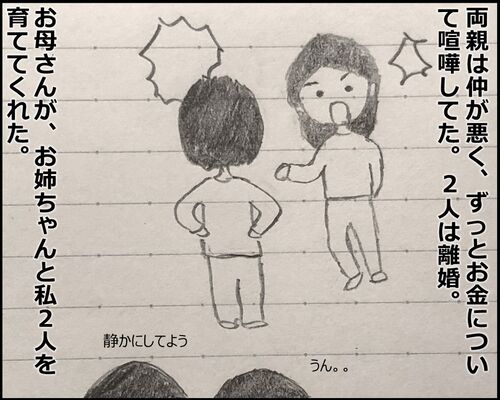 両親は仲が悪く、ずっとお金につい
て喧嘩してた。２人は離婚。
お母さんが、お姉ちゃんと私２人を
育ててくれた。
静かにしてよう
うん。。